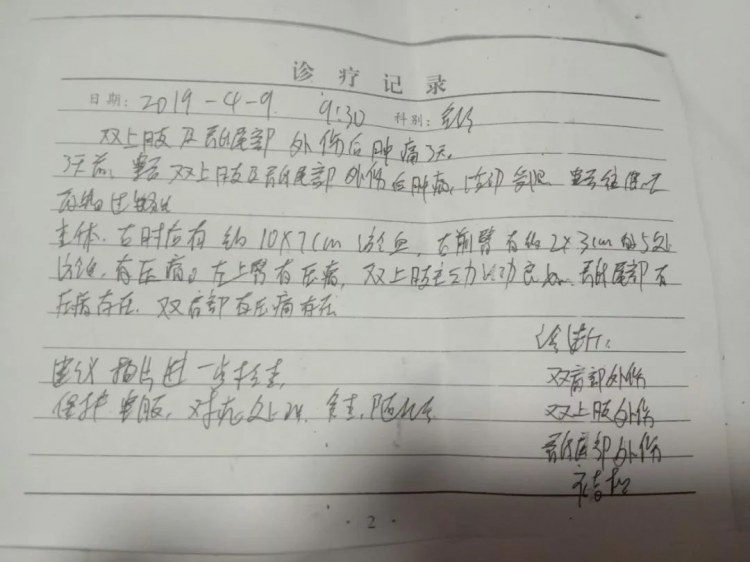 诊疗记录
日期: 2019-4-9 9:30 科别:
双上肢及骶尾部外伤后肿痛3天。
3天前, 患者双上肢及骶尾部外伤后肿痛, 活动
查体. 右肘后有约10X7cm 淤血, 右前臂有约2X3cm的5处
淤血, 有压痛。左上臂有压痛, 双上肢主动活动良好. 骶尾部有
压痛存在. 双肩部有压痛存在
诊断:
建议拍片进一步检查,
双肩部外伤
保护患肢, 对症处理. 随诊.
双上肢外伤
骶尾部外伤
· 2 ·